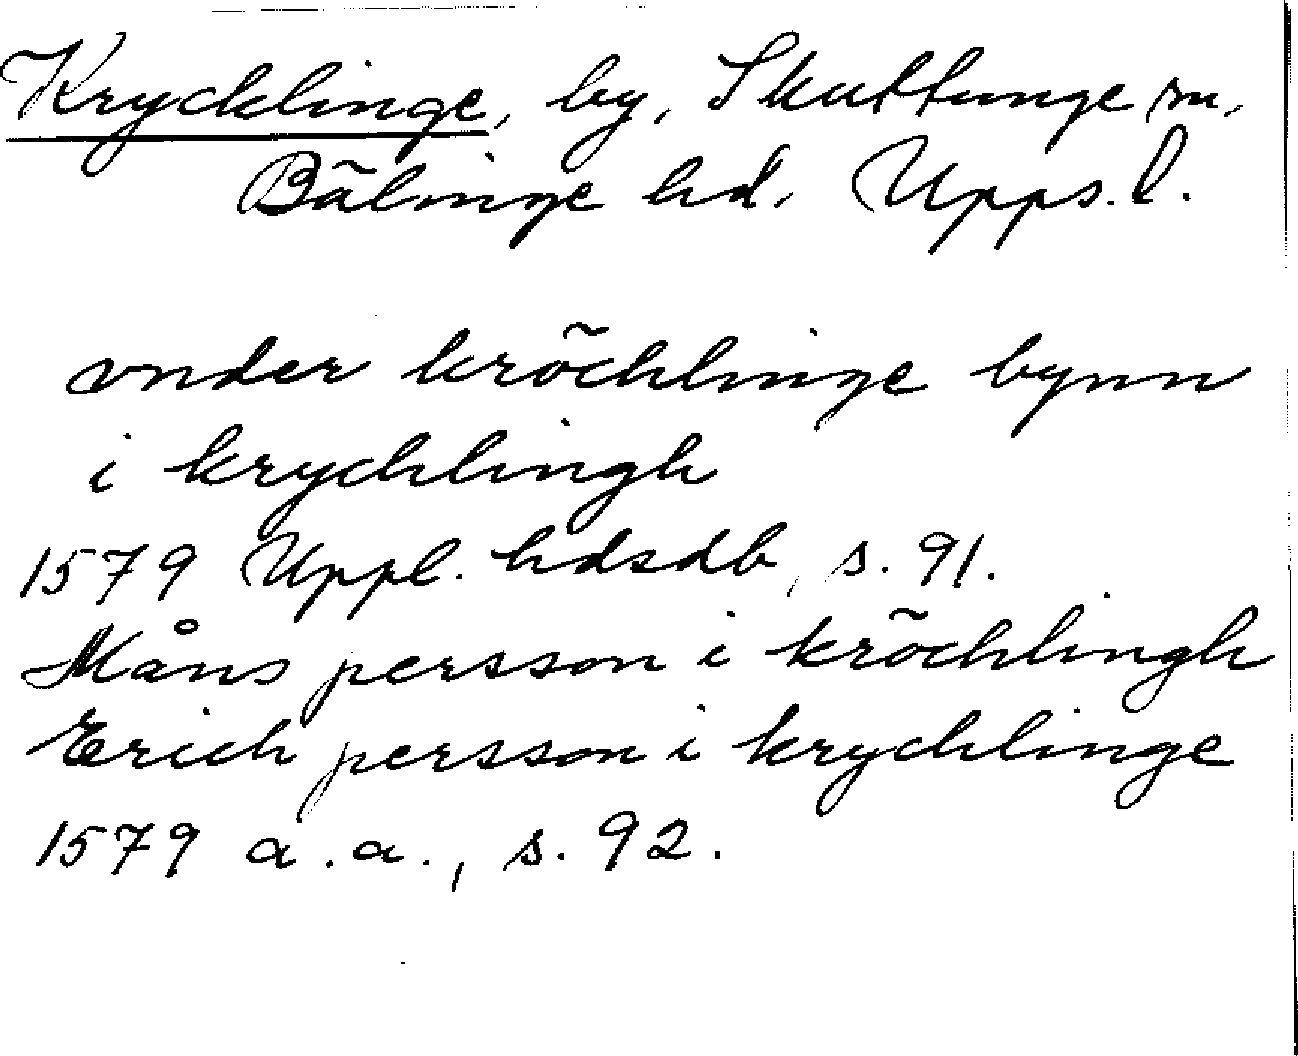 Krycklinge, by, Skuttunge sn,
Bälinge hd, Upps. l.
vnder kröchlinge bynn
i krychlingh
1579 Uppl. hdsdb, s. 91.
Måns persson i kröchlingh
Erich persson i krychlinge
1579 a.a., s. 92.